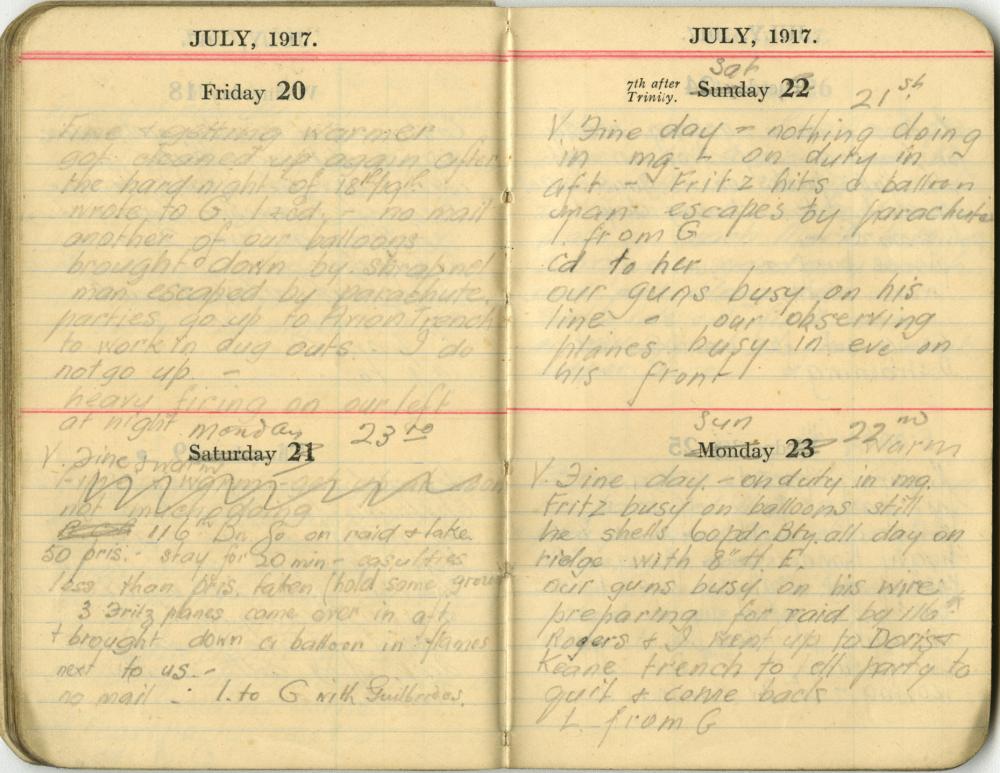 JULY, 1917.
Friday 20
Fine & getting warmer
got cleaned up again after
the hard night of 18th/19th
wrote to G. 1 & cd. - no mail
another of our balloons
brought down by shrapnel
man escaped by parachute.
parties, go up to Arion Trench
to work in dug outs. I do
not go up. -
heavy firing on our left
at night
Monday 23rd
Saturday 21
V. Fine & warm
not much doing
116th Bn. Go on raid & take
50 pris. - stay for 20 min - casulties
less than pris. taken (hold some ground
3 Fritz planes come over in aft
& brought down a balloon in flames
next to us. -
no mail - l. to G with Guilbrides.
JULY, 1917.
Sat 21st
7th after Trinity. Sunday 22
V. Fine day - nothing doing
in mg. - on duty in
aft - Fritz hits a balloon
man escapes by parachute
l. from G
cd to her
our guns busy on his
line - our observing
planes busy in eve on
his front
Sun 22nd
Monday 23 Warm
V. Fine day. - on duty in mg.
Fritz busy on balloons still
he shells 60pdr Bty. all day on
ridge with 8" H.E.
our guns busy on his wire
preparing for raid by 116th
Rogers & I went up to Doris &
Keane trench to tell party to
quit & come back
L. from G